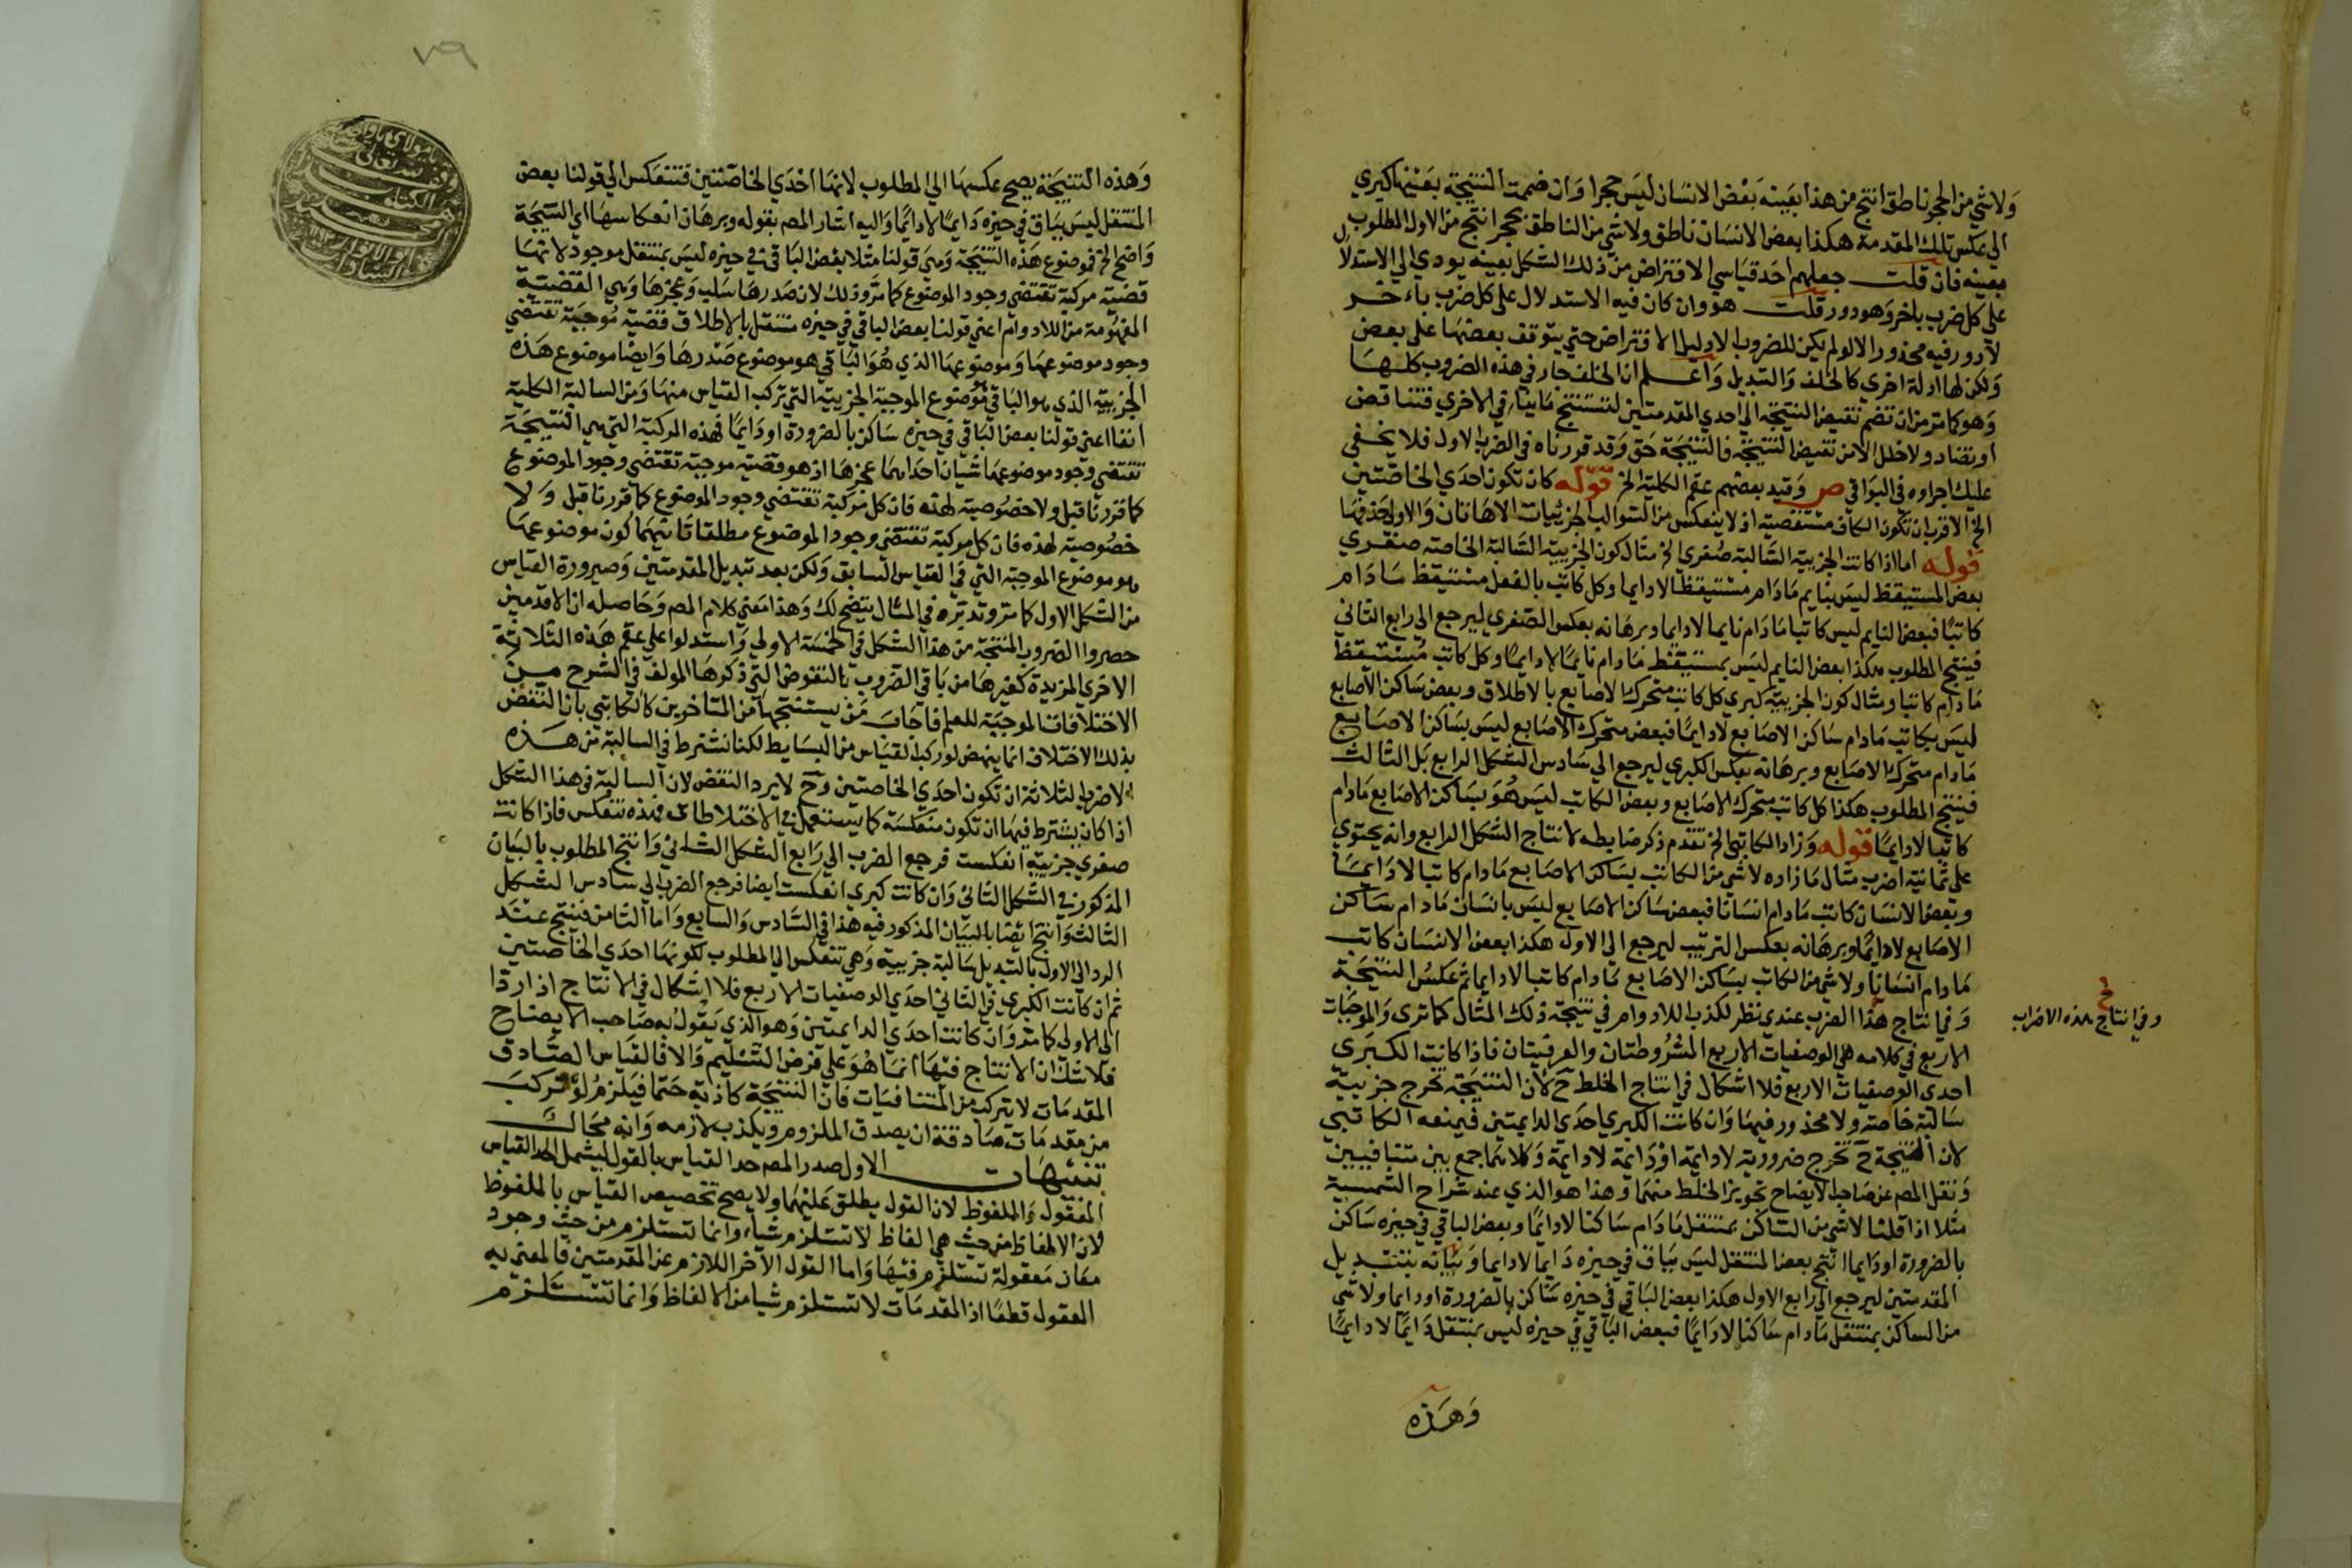 ولا شي من الحجر ناطق انتج من هذا بعينه بعض الانسان ليس حجرا وان ضممت النتيجة بعينها كبري
الي عكس تلك المقدمة هكذا بعض الانسان ناطق ولا شي من الناطق بحجر انتج من الاول المطلوب
بعينه فان قلت جعلهم احد قياسي الافتراض من ذلك الشكل بعينه يودي الي الاستدلال
علي كل ضرب باخر وهو دور قلت هو وان كان فيه الاستدلال علي كل ضرب باخر
لا دور فيه محذور الا لو لم يكن للضروب الا دليل الافتراض حتي يتوقف بعضها علي بعض
ولكن لها ادلة اخري كالخلف والتبديل واعلم ان الخلف جار في هذه الضروب كلها
وهو كما تر من ان تضم نقيض النتيجة الي احدي المقدمتين لتستنتج ما ينافي الاخري فتناقض
او تضاد ولا خلل الا من نقيض النتيجة فالنتيجة حق وقد قررناه في الضرب الاول فلا يخفي
عليك اجراوه في البواقي ص وقيد بعضهم عقم الكلية الخ قوله كان تكون احدي الخاصتين
الخ الاقرب ان تكون الكاف مستقصية اذ لا ينعكس من السوالب الجزئيات الا هاتان والا ولجذفها
قوله اما اذا كانت الجزيية السالبة صغري الخ مثال كون الجزيية السالبة الخاصة صغري
بعض المستيقظ ليس بنايم مادام مستيقظا لا دايما وكل كاتب بالفعل مستيقظ مادام
كاتبا فبعض النايم ليس كاتبا مادام نايما لا دايما وبرهانه بعكس الصغري ليرجع الي رابع الثاني
فينتج المطلوب هكذا بعض النايم ليس بمستيقظ مادام نايما لا دايما وكل كاتب مستيقظ
مادام كاتبا ومثال كون الجزيية كبري كل كاتب متحرك الاصابع بالاطلاق وبعض ساكن الاصابع
ليس بكاتب مادام ساكن الاصابع لا دايما فبعض متحرك الاصابع ليس بساكن الاصابع
مادام متحرك الاصابع وبرهانه بعكس الكبري ليرجع الي سادس الشكل الرابع بل الثالث
فينتج المطلوب هكذا كل كاتب متحرك الاصابع وبعض الكاتب ليس هو بساكن الاصابع مادام
كاتبا لا دايما قوله وزاد الكاتبي الخ تقدم ذكر ضابطه لانتاج الشكل الرابع وانه يحتوي
علي ثمانية اضرب مثال ما زاده لا شي من الكاتب بساكن الاصابع مادام كاتبا لا دايما
وبعض الانسان كاتب مادام انسانا فبعض ساكن الاصابع ليس بانسان مادام ساكن
الاصابع لا دايما وبرهانه بعكس الترتيب ليرجع الي الاول هكذا بعض الانسان كاتب
مادام انسانا ولا شي من الكاتب بساكن الاصابع مادام كاتبا لا دايما ثم عكس النتيجة
وفي انتاج هذا الضرب عندي نظر لكذب اللادوام في نتيجة ذلك المثال كما تري والموجبات
وفي انتاج هذه الاضراب
الاربع في كلامه هي الوصفيات الاربع المشروطتان والعرفيتان فاذا كانت الكبري
احدي الوصفيات الاربع فلا اشكال في انتاج الخلط ح لان النتيجة تخرج جزيية
سالبة خاصة ولا محذور فيها وان كانت الكبري احدي الدايمتين فيمنعه الكاتبي
لان النتيجة ح تخرج ضرورية لا دايمة او دايمة لا دايمة وكلاهما جمع بين متنافيين
ونقل المص عن صاحب الايضاح تجويز الخلط منهما وهذا هو الذي عند شراح الشمسية
مثلا اذا قلنا لا شي من الساكن بمنتقل مادام ساكنا لا دايما وبعض الباقي في حيزه ساكن
بالضرورة او دايما انتج بعض المنتقل ليس بباق في حيزه دايما لا دايما وبيانه بتبديل
المقدمتين ليرجع الي رابع الاول هكذا بعض الباقي في حيزه ساكن بالضرورة او دايما ولا شي
من الساكن بمنتقل مادام ساكنا لا دايما فبعض الباقي في حيزه ليس بمنتقل دايما لا دايما
وهذه
٧٩
وهذه النتيجة يصح عكسها الي المطلوب لانها احدي الخاصتين فتنعكس الي قولنا بعض
المنتقل ليس بباق في حيزه دايما لا دايما واليه اشار المص بقوله وبرهان انعكاسها اي النتيجة
واضح الخ فموضوع هذه النتيجة وهي قولنا مثلا بعض الباقي في حيزه ليس بمنتقل موجود لانها
قضية مركبة تقتضي وجود الموضوع كما مر وذلك لان صدرها سلب وعجزها وهي القضية
المفهومة من اللادوام اعني قولنا بعض الباقي في حيزه منتقل بالاطلاق قضية موجبة تقتضي
وجود موضوعها وموضوعها الذي هو الباقي هو موضوع صدرها وايضا موضوع هذه
الجزيية الذي هو الباقي موضوع الموجبة الجزيية التي تركب القياس منها ومن السالبة الكلية
انفا اعني قولنا بعض الباقي في حيزه ساكن بالضرورة او دايما فهذه المركبة التي هي النتيجة
تقتضي وجود موضوعها شيان احداهما عجزها اذ هو قضية موجبة تقتضي وجود الموضوع
كما قررنا قبل ولا خصوصية لهذه فان كل مركبة تقتضي وجود الموضوع كما قررنا قبل ولا
خصوصية لهذه فان كل مركبة تقتضي وجود الموضوع مطلقا ثانيهما كون موضوعها
هو موضوع الموجبة التي في القياس السابق ولكن بعد تبديل المقدمتين وصيرورة القياس
من الشكل الاول كما مر وتدبره في المثال يتضح لك وهذا معني كلام المص وحاصله ان الاقدمين
حصروا الضروب المنتجة من هذا الشكل في الخمسة الاولي واستدلوا علي عقم هذه الثلاثة
الاخري المزيدة كغيرها من باقي الضروب بالنقوض التي ذكرها المولف في الشرح من
الاختلافات الموجبة للعقم فاجاب من يستنتجها من المتاخرين كالكاتبي بان النقض
بذلك الاختلاف انما ينهض لو ركب القياس من البسايط لكنا نشترط في السالبة من هذه
الاضرب الثلاثة ان تكون احدي الخاصتين وح لا يرد النقض لان السالبة في هذا الشكل
اذا كان يشترط فيها ان تكون منعكسة كما يستعمل في الاختلاطات فهذه تنعكس فاذا كانت
صغري جزيية انعكست فرجع الضرب الي رابع الشكل الثاني وانتج المطلوب بالبيان
المذكور في الشكل الثاني وان كانت كبري انعكست ايضا فرجع الضرب الي سادس الشكل
الثالث وانتج ايضا بالبيان المذكور فيه هذا في السادس والسابع واما الثامن فينتج عند
الرد الي الاول بالتبديل سالبة جزيية وهي تنعكس الي المطلوب لكونها احدي الخاصتين
ثم ان كانت الكبري في الثاني احدي الوصفيات الاربع فلا اشكال في الانتاج اذا ردا
الي الاولي كما مر وان كانت احدي الدايمتين وهو الذي يقول به صاحب الايضاح
فلا شك ان الانتاج فيها انما هو علي فرض التسليم والا فالقياس الصادق
المقدمات لا يتركب من المتنافيات فان النتيجة كاذبة حتما فيلزم لو تركب
من مقدمات صادقة ان يصدق الملزوم ويكذب لازمه وانه محال
تنبيهات الاول صدر المص حد القياس بالقول ليشمل الحد القياس
المعقول والملفوظ لان القول يطلق عليهما ولا يصح تخصيص القياس بالملفوظ
لان الالفاظ من حيث هي الفاظ لا تستلزم شيا وانما تستلزم من حيث وجود
معان معقولة تستلزم فيها واما القول الاخر اللازم عن المقدمتين فالمعني به
المعقول قطعا اذ المقدمات لا تستلزم شيا من الالفاظ وانما تستلزم